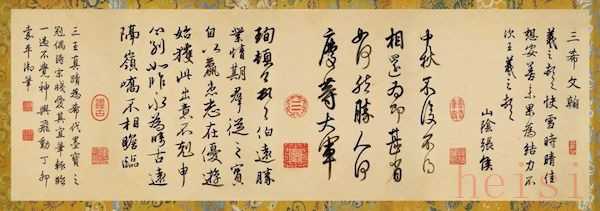 三希文翰
羲之頓首快雪時晴佳
想安善未果為結力不
次王羲之頓首
山陰張侯
中秋不復不得
相還為即甚省
如何然勝人何
慶等大軍
珣頓首頓首伯遠勝
業情期群從之寶
自以羸患志在優遊
始獲此出意不剋申
分別如昨永為疇古遠
隔嶺嶠不相瞻臨
三王真蹟為希代墨寶之
冠偶得宋牋愛其宜筆輒臨
一過不覺神興飛動丁卯
嘉平御筆
heisi